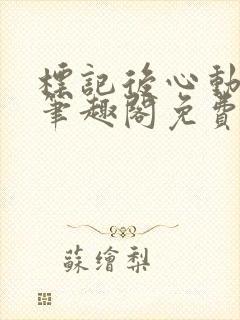 標記後心動
筆趣閣免費
蘇繪梨